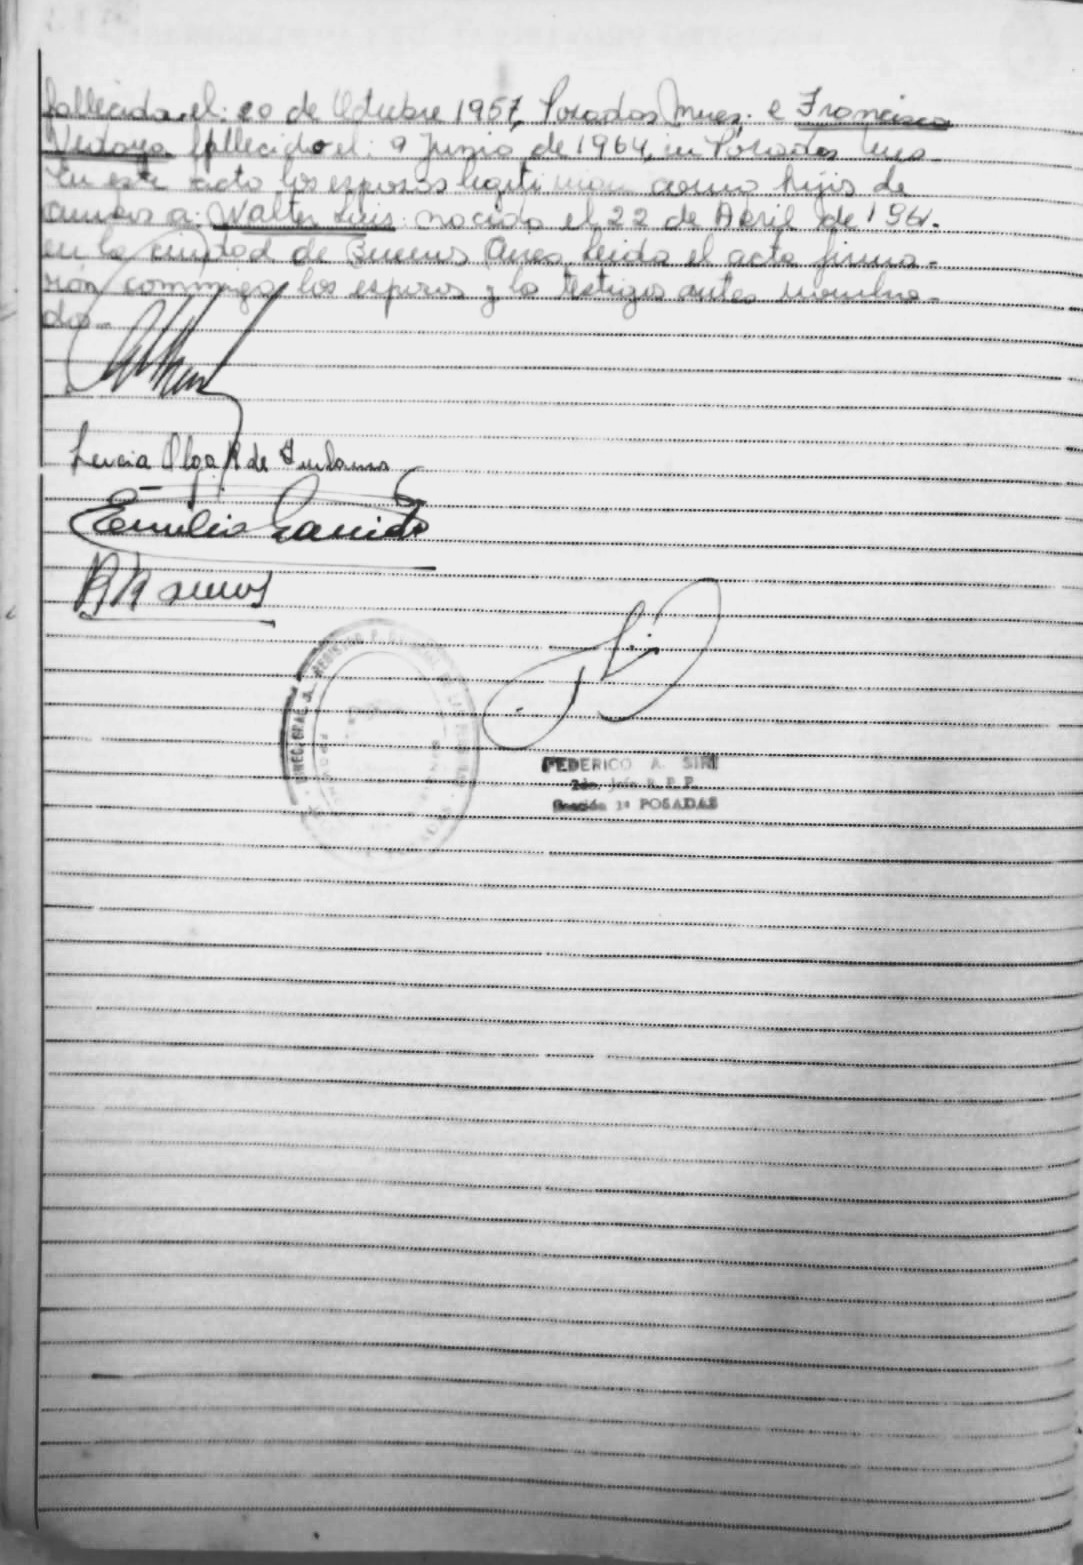 fallecida el: 20 de Octubre 1957, Posadas Mnes. e Francisco
fallecido el: 9 Junio de 1964, en Posadas Mnes.
En este acto los esposos legitiman como hijo de
ambos a: Walter Luis: nacido el 22 de Abril de 1961.
en la ciudad de Buenos Aires. Leida el acta firma-
rón conmigo los esposos y los testigos antes nombra-
do.-
Lucia Olga R de
Emilio Garrido
FEDERICO A. SIRI
Jefe R. P. P.
Sección 1ª POSADAS